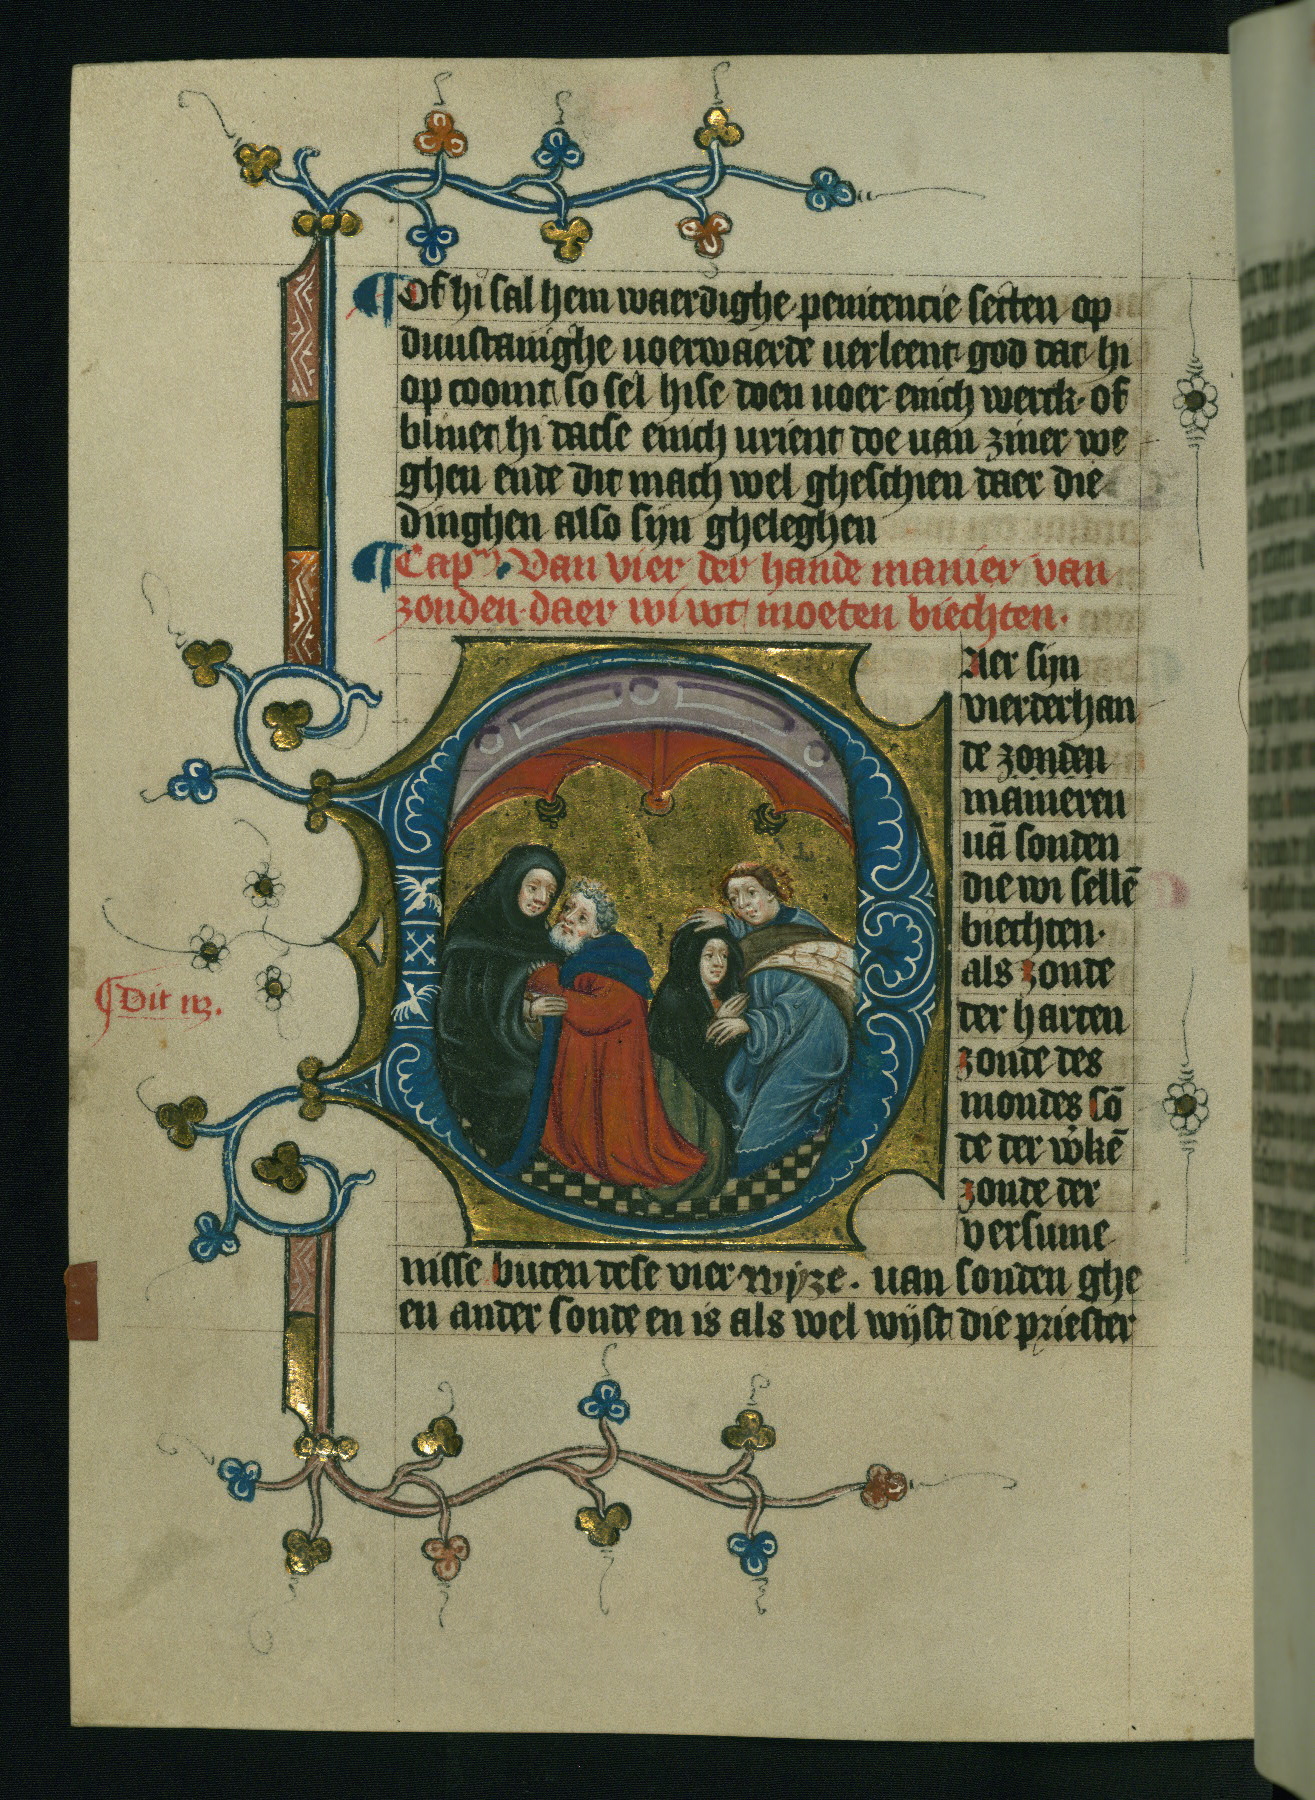 Of hi sal hem waerdighe penitencie setten op
dunstanighe uoerwaerde uerleent god dat hi
op coomt so sel hise doen uoer enich werck· of
bliuet hi datse enich urient doe uan ziner we
ghen ende dit mach wel gheschien daer die
dinghen also sijn gheleghen
Capm. Van vier der hande manier van
zonden· daer wi wt moeten biechten·
Dit iz.
Aer sijn
vierderhan
de zonden
manieren
uā sonden
die wi sellē
biechten·
als zonde
der harten
zonde des
mondes sō
de der wkē
zonde der
versume
nisse buten dese vier wyze. uan sonden ghe
en ander sonde en is als wel wijst die priester